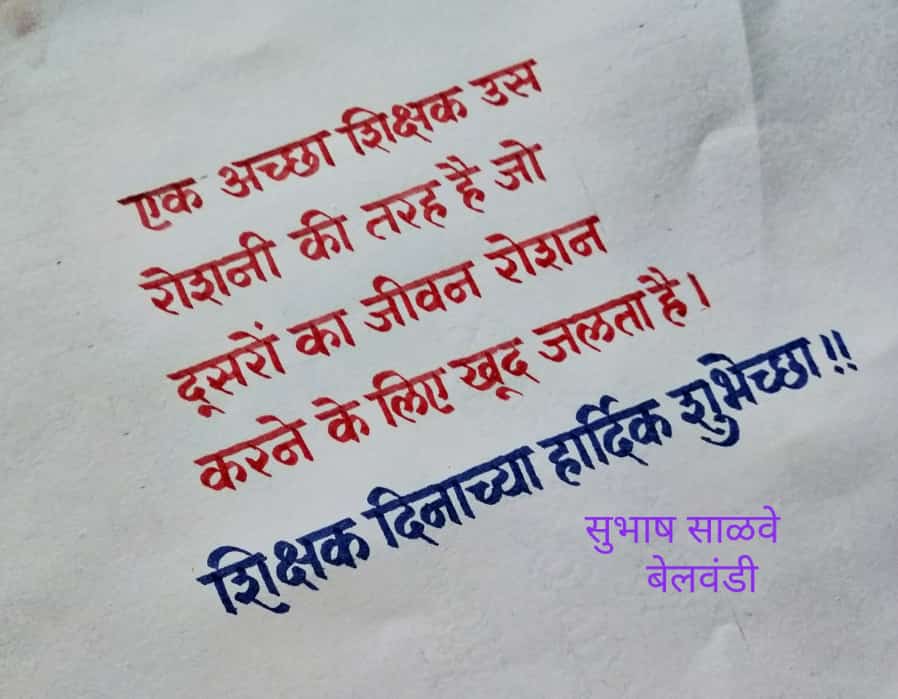 एक अच्छा शिक्षक उस
रोशनी की तरह है जो
दूसरों का जीवन रोशन
करने के लिए खूद जलता है।
शिक्षक दिनाच्या हार्दिक शुभेच्छा!!
सुभाष साळवे
बेलवंडी